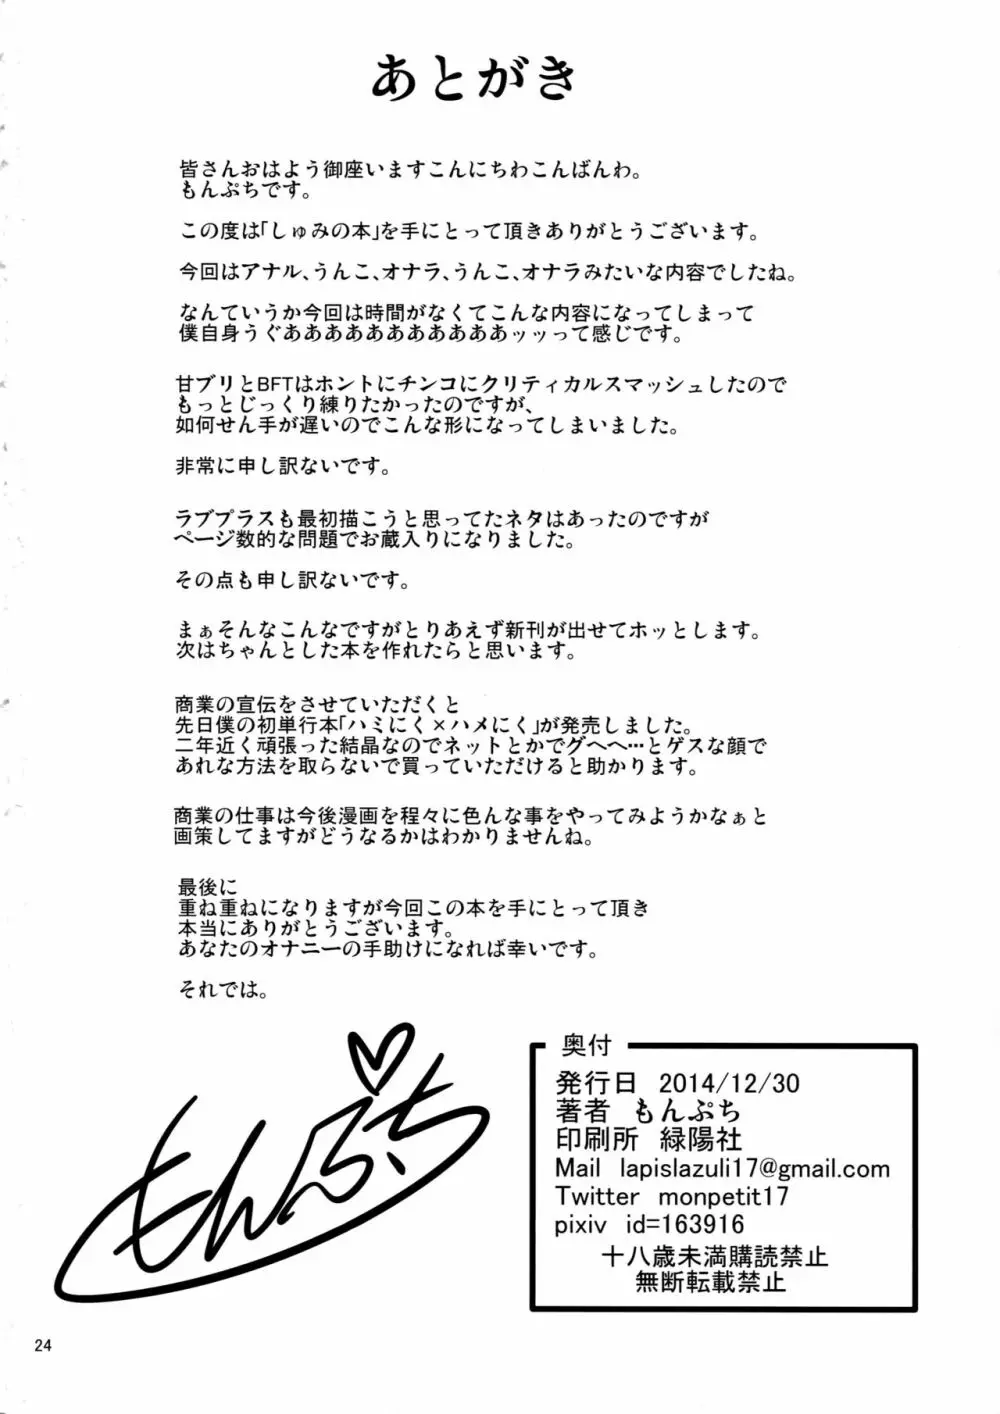 あとがき
皆さんおはよう御座いますこんにちわこんばんわ。
もんぷちです。
この度は「しゅみの本」を手にとって頂きありがとうございます。
今回はアナル、うんこ、オナラ、うんこ、オナラみたいな内容でしたね。
なんていうか今回は時間がなくてこんな内容になってしまって
僕自身うぐあああああああああああッッって感じです。
甘ブリとBFTはホントにチンコにクリティカルスマッシュしたので
もっとじっくり練りたかったのですが、
如何せん手が遅いのでこんな形になってしまいました。
非常に申し訳ないです。
ラブプラスも最初描こうと思ってたネタはあったのですが
ページ数的な問題でお蔵入りになりました。
その点も申し訳ないです。
まぁそんなこんなですがとりあえず新刊が出せてホッとします。
次はちゃんとした本を作れたらと思います。
商業の宣伝をさせていただくと
先日僕の初単行本「ハミにく×ハメにく」が発売しました。
二年近く頑張った結晶なのでネットとかでグヘヘ…とゲスな顔で
あれな方法を取らないで買っていただけると助かります。
商業の仕事は今後漫画を程々に色んな事をやってみようかなぁと
画策してますがどうなるかはわかりませんね。
最後に
重ね重ねになりますが今回この本を手にとって頂き
本当にありがとうございます。
あなたのオナニーの手助けになれば幸いです。
それでは。
もんぷち
奥付
発行日 2014/12/30
著者 もんぷち
印刷所 緑陽社
Mail lapislazuli17@gmail.com
Twitter monpetit17
pixiv id=163916
十八歳未満購読禁止
無断転載禁止
24